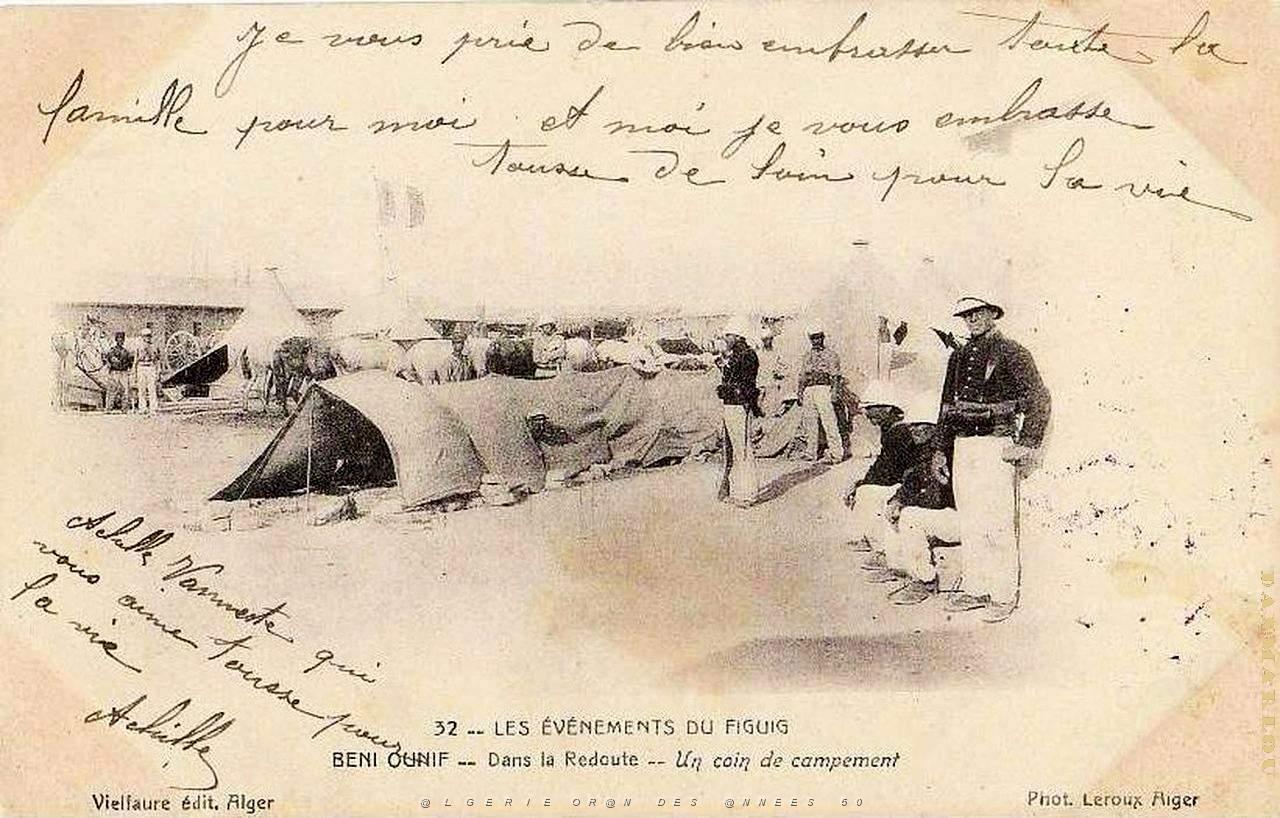 Je vous prie de bien embrasser toute la
famille pour moi et moi je vous embrasse
tousse de loin pour la vie
Achille Vanneste qui
vous aime tousse pour
la vie
Achille
32 -- LES ÉVÉNEMENTS DU FIGUIG
BENI OUNIF -- Dans la Redoute -- Un coin de campement
Vielfaure édit. Alger
@LGERIE OR@N DES @NNEES 50
Phot. Leroux Alger